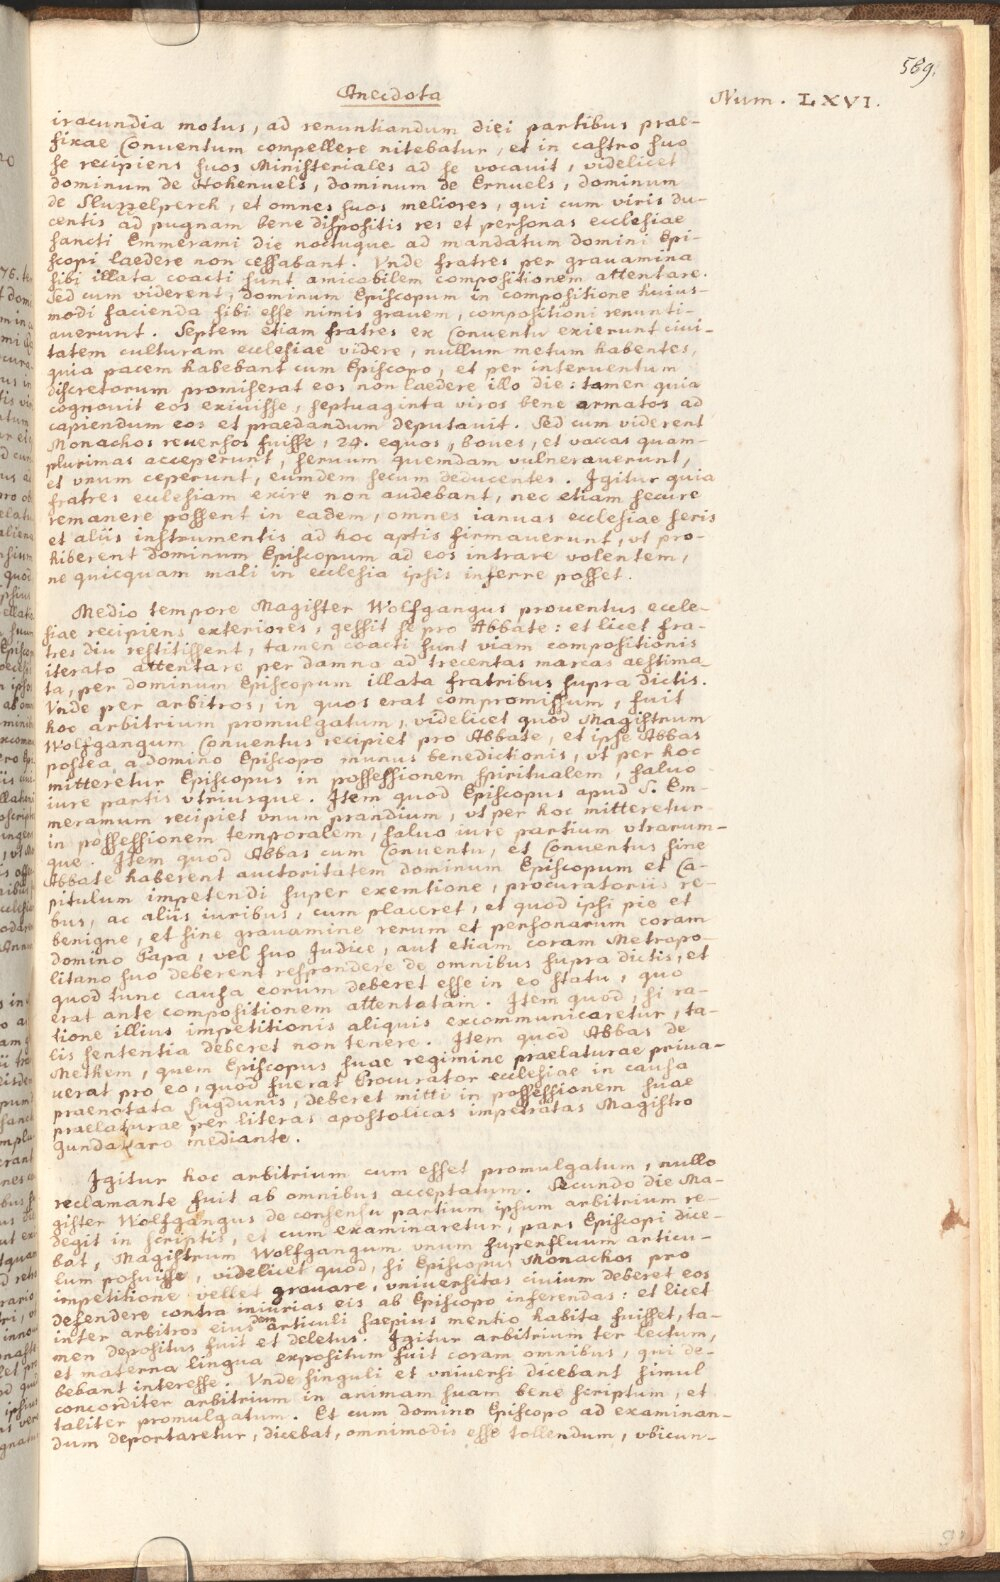 569.
Anecdota
Num. LXVI.
iracundia motus, ad renuntiandum diei partibus prae-
fixae Conventum compellere nitebatur, et in castro suo
se recipiens suos Ministeriales ad se vocauit, videlicet
dominum de Hohenuels, dominum de Ernuels, dominum
de Sluzzelperch, et omnes suos meliores, qui cum viris du-
centis ad pugnam bene dispositis res et personas ecclesiae
sancti Emmerami die noctuque ad mandatum domini Epi-
scopi laedere non cessabant. Vnde fratres per grauamina
sibi illata coacti sunt amicabilem compositionem attentare.
Sed cum viderent, dominum Episcopum in compositione huius-
modi facienda sibi esse nimis grauem, compositioni renunti-
auerunt. Septem etiam fratres ex Conuentu exierunt ciui-
tatem culturam ecclesiae videre, nullum metum habentes,
quia pacem habebant cum Episcopo, et per interuentum
discretorum promiserat eos non laedere illo die: tamen quia
cognouit eos exiuisse, septuaginta viros bene armatos ad
capiendum eos et praedandum deputauit. Sed cum viderent
Monachos reuersos fuisse, 24. equos, boues, et vaccas quam-
plurimas acceperunt, seruum quemdam vulnerauerunt,
et vnum ceperunt, eumdem secum deducentes. Igitur quia
fratres ecclesiam exire non audebant, nec etiam secure
remanere possent in eadem, omnes ianuas ecclesiae seris
et aliis instrumentis ad hoc aptis firmauerunt, vt pro-
hiberent dominum Episcopum ad eos intrare volentem,
ne quicquam mali in ecclesia ipsis inferre posset.
Medio tempore Magister Wolfgangus prouentus eccle-
siae recipiens exteriores, gessit se pro Abbate: et licet fra-
tres diu restitissent, tamen coacti sunt viam compositionis
iterato attentare per damna ad trecentas marcas aestima-
ta, per dominum Episcopum illata fratribus supra dictis.
Vnde per arbitros, in quos erat compromissum, fuit
hoc arbitrium promulgatum, videlicet quod Magistrum
Wolfgangum Conuentus recipiet pro Abbate, et ipse Abbas
postea a domino Episcopo munus benedictionis, vt per hoc
mitteretur Episcopus in possessionem spiritualem, saluo
iure partis vtriusque. Item quod Episcopus apud S. Em-
meramum recipiet vnum prandium, vt per hoc mitteretur
in possessionem temporalem, saluo iure partium vtrarum-
que. Item quod Abbas cum Conuentu, et Conuentus sine
Abbate haberent auctoritatem dominum Episcopum et Ca-
pitulum impetendi super exemtione, procuratoriis re-
bus, ac aliis iuribus, cum placeret, et quod ipsi pie et
benigne, et sine grauamine rerum et personarum coram
domino Papa, vel suo Judice, aut etiam coram Metropo-
litano suo deberent respondere de omnibus supra dictis, et
quod tunc causa eorum deberet esse in eo statu, quo
erat ante compositionem attentatam. Item quod, si ra-
tione illius impetitionis aliquis excommunicaretur, ta-
lis sententia deberet non tenere. Item quod Abbas de
Methem, quem Episcopus suae regimine praelaturae priua-
uerat pro eo, quod fuerat Procurator ecclesiae in causa
praenotata Lugdunis, deberet mitti in possessionem suae
praelaturae per literas apostolicas impetratas Magistro
Gundakaro mediante.
Igitur hoc arbitrium cum esset promulgatum, nullo
reclamante fuit ab omnibus acceptatum. Secundo die Ma-
gister Wolfgangus de consensu partium ipsum arbitrium re-
degit in scriptis, et cum examinaretur, pars Episcopi dice-
bat, Magistrum Wolfgangum vnum superfluum articu-
lum posuisse, videlicet quod, si Episcopus Monachos pro
impetitione vellet grauare, vniuersitas ciuium deberet eos
defendere contra iniurias eis ab Episcopo inferendas: et licet
inter arbitros eiusdem articuli saepius mentio habita fuisset, ta-
men depositus fuit et deletus. Igitur arbitrium ter lectum,
et materna lingua expositum fuit coram omnibus, qui de-
bebant interesse. Vnde singuli et vniuersi dicebant simul
concorditer arbitrium in animam suam bene scriptum, et
taliter promulgatum. Et cum domino Episcopo ad examinan-
dum deportaretur, dicebat, omnimodis esse tollendum, vbicun-